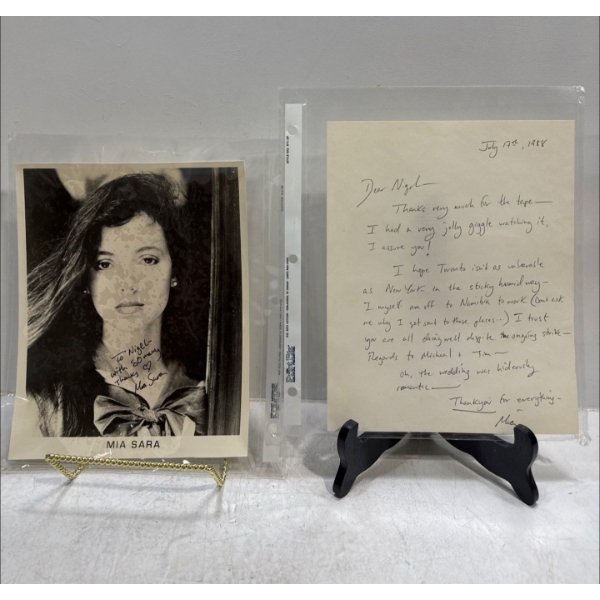 To Nigel-
with SO many
thanks
Mia Sara
MIA SARA
July 17th, 1988
Dear Nigel-
Thanks very much for the tape-
I had a very jolly giggle watching it,
I assure you!
I hope Toronto isn't as vulnerable
as New York in the sticky humid way-
I myself am off to Namibia to work (don't ask
me why I get sent to these places...) I trust
you are all doing well despite the ongoing strike-
Regards to Michael + Tim-
Oh, the wedding was hideously
romantic-
Thankyou for everything-
Mia